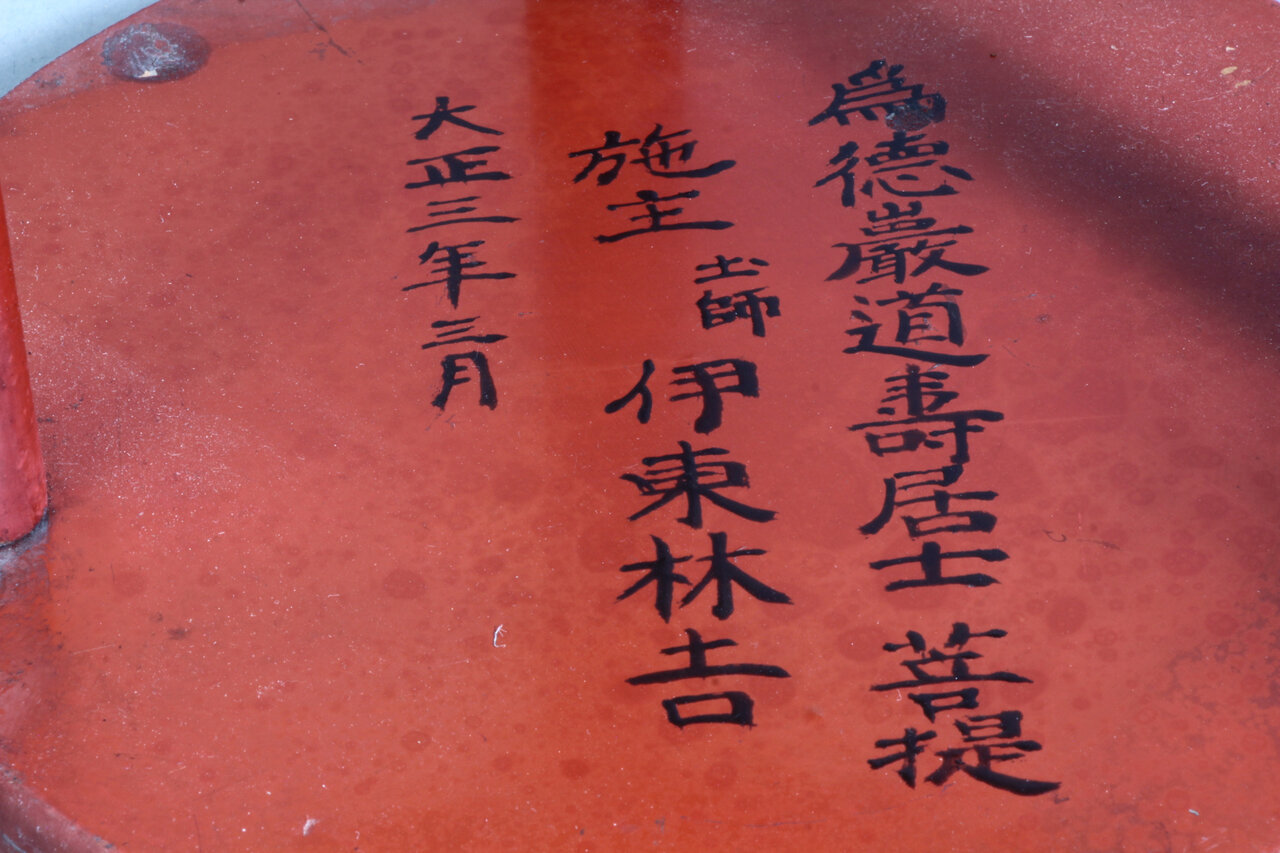 為德巖道壽居士 菩提
施主 土師 伊東林吉
大正三年三月